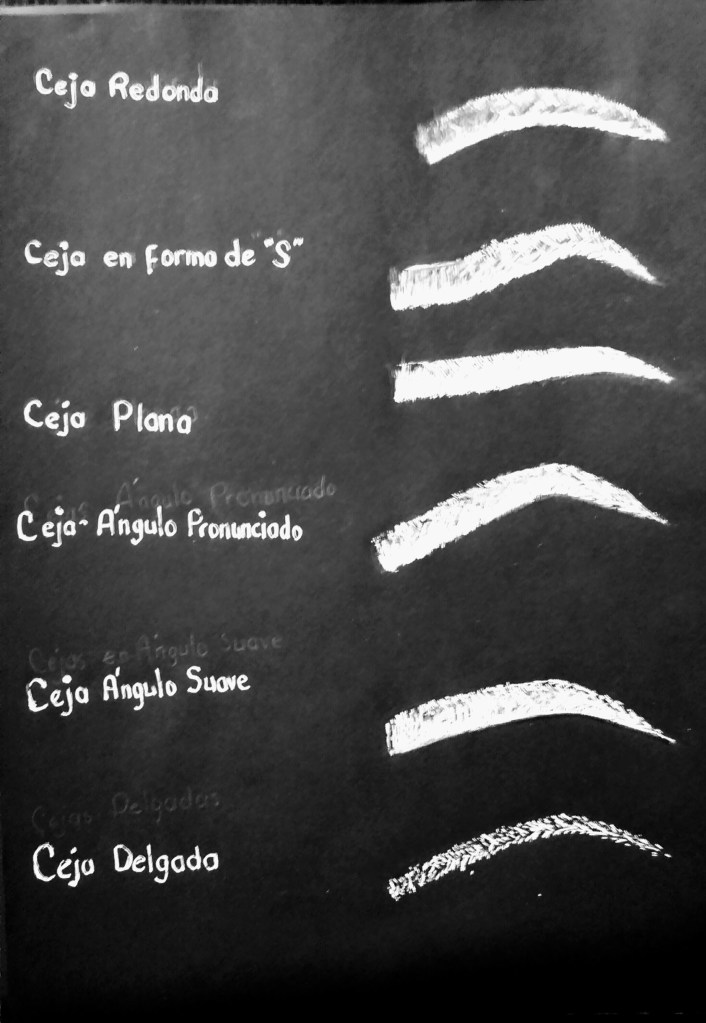 Ceja Redonda
Ceja en forma de "S"
Ceja Plana
Cejas Ángulo Pronunciado
Ceja- Ángulo Pronunciado
Cejas en Ángulo Suave
Ceja Ángulo Suave
Cejas Delgadas
Ceja Delgada